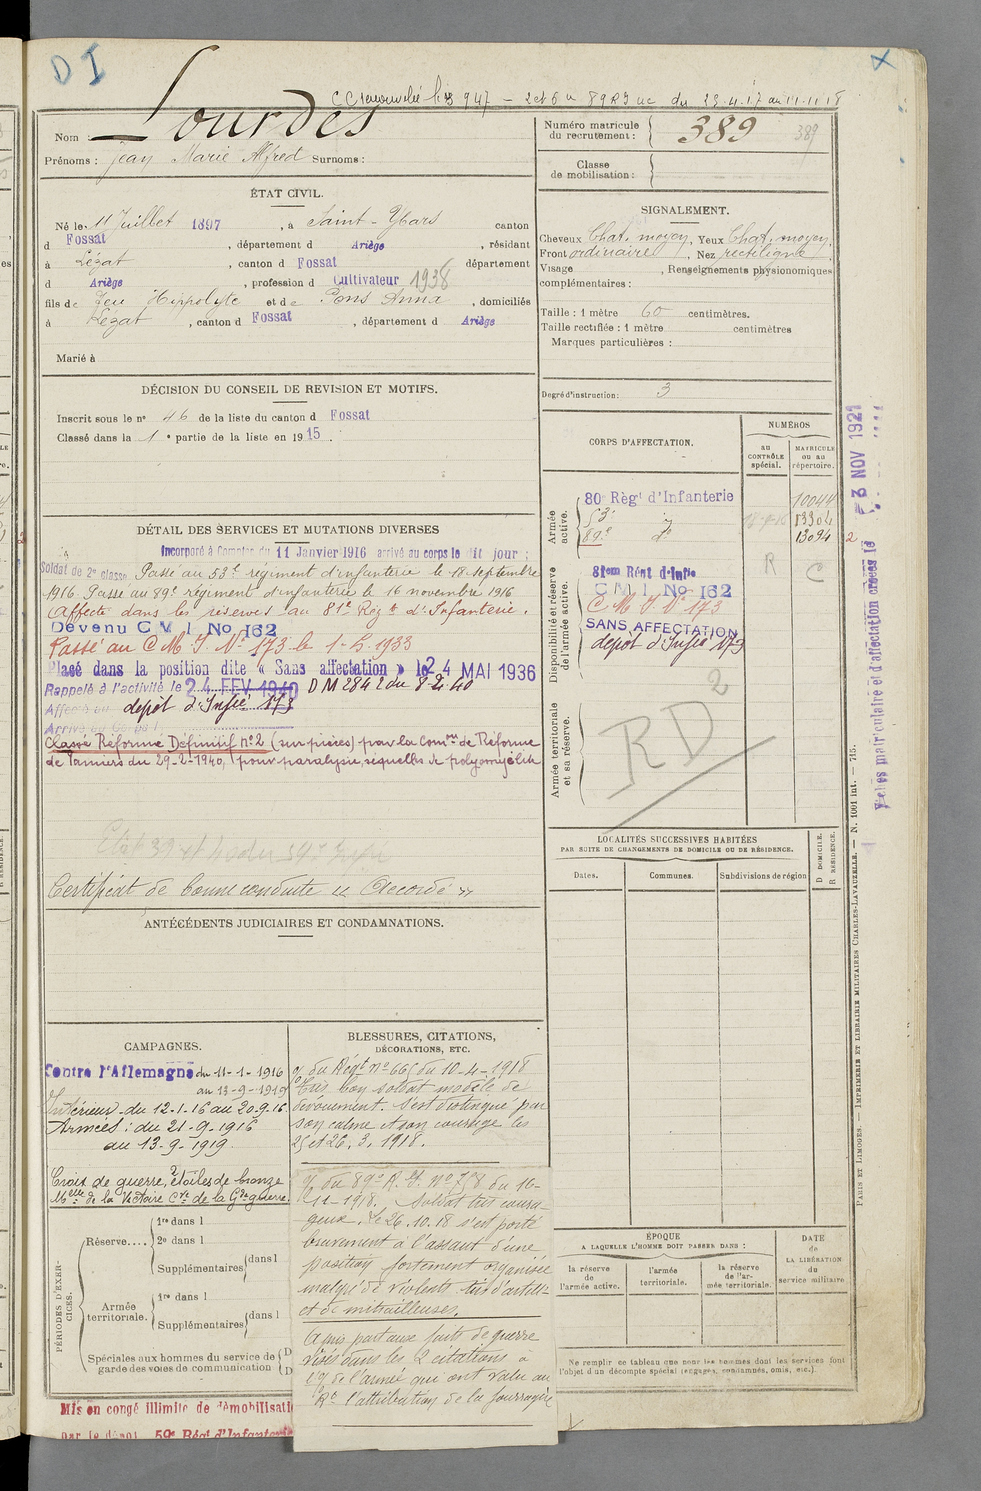 D I
C C renouvelée le 947 - 2 et 6 u 89 R I uc du 23.4.17 au 11.11.18
Nom : Lourdes
Prénoms : Jean Marie Alfred Surnoms :
Numéro matricule du recrutement : 389 389
Classe de mobilisation :
ÉTAT CIVIL.
Né le 11 Juillet 1897, à Saint-Ybars canton
d Fossat, département d Ariège, résidant
à Lézat, canton d Fossat département
d Ariège, profession d Cultivateur 1938
fils de feu Hippolyte et de Pons Anna, domiciliés
à Lézat, canton d Fossat, département d Ariège
Marié à
SIGNALEMENT.
Cheveux Chat. moyen, Yeux Chat. moyen,
Front ordinaire, Nez rectiligne
Visage , Renseignements physionomiques
complémentaires :
Taille : 1 mètre 60 centimètres.
Taille rectifiée : 1 mètre centimètres
Marques particulières :
Degré d'instruction : 3
DÉCISION DU CONSEIL DE REVISION ET MOTIFS.
Inscrit sous le n° 46 de la liste du canton d Fossat
Classé dans la 1e partie de la liste en 1915.
DÉTAIL DES SERVICES ET MUTATIONS DIVERSES
Incorporé à Compter du 11 Janvier 1916 arrivé au corps le dit jour ;
Soldat de 2e classe. Passé au 53e régiment d'infanterie le 18 septembre
1916. Passé au 89e régiment d'infanterie le 16 novembre 1916
Affecté dans les réserves au 81e Régt d'Infanterie.
Devenu C M I No 162
Passé au C M I. N° 173 le 1-5-1933
Placé dans la position dite « Sans affectation » le 24 MAI 1936
Rappelé à l'activité le 24 FEV 1940 D M 284 2 du 8-2-40
Affecté au dépôt d'Infie 173
Arrivé au Corps l
Classé Réforme Définitif n°2 (sur pièces) par la Comon de Réforme
de Pamiers du 29-2-1940, pour paralysie, séquelles de polyomyélite
Certificat de bonne conduite « Accordé »
CORPS D'AFFECTATION.
NUMÉROS
au CONTRÔLE spécial.
MATRICULE ou au répertoire.
Armée active.
80e Règt d'Infanterie 10044
53e d° 13304
89e d° 13094 2
R C
Disponibilité et réserve de l'armée active.
81em Régt d'Infie
C M I No 162
C M I. N° 173
SANS AFFECTATION
dépôt d'Infie 173
2
Armée territoriale et sa réserve.
RD
LOCALITÉS SUCCESSIVES HABITÉES
PAR SUITE DE CHANGEMENTS DE DOMICILE OU DE RÉSIDENCE.
Dates.
Communes.
Subdivisions de région
D DOMICILE.
R RESIDENCE.
ANTÉCÉDENTS JUDICIAIRES ET CONDAMNATIONS.
CAMPAGNES.
Contre l'Allemagne du 11-1-1916
au 13-9-1919
Intérieur du 12-1-16 au 20-9-16
Armées : du 21-9-1916
au 13-9-1919.
Croix de guerre, 2 étoiles de bronze
Mlle de la Victoire Cve de la Gde guerre.
BLESSURES, CITATIONS,
DÉCORATIONS, ETC.
O/ du Régt n° 665 du 10-4-1918
Très bon soldat modèle de
dévouement. S'est distingué par
son calme et son courage les
25 et 26.3.1918.
O/ du 89e R.I. n° 758 du 16-
11-1918. Soldat très coura-
geux. Le 26.10.18 s'est porté
bravement à l'assaut d'une
position fortement organisée
malgré de violents tirs d'artill-
et de mitrailleuses.
A pris part aux faits de guerre
visés dans les 2 citations à
l'O/ de l'armée qui ont valu au
Rt l'attribution de la fourragère
PÉRIODES D'EXERCICES.
Réserve....
1re dans l
2e dans l
Supplémentaires dans l
Armée territoriale.
1re dans l
Supplémentaires dans l
Spéciales aux hommes du service de
garde des voies de communication
D
D
Mis en congé illimité de démobilisati
par le dépôt 59e Régt d'Infanterie
ÉPOQUE
A LAQUELLE L'HOMME DOIT PASSER DANS :
la réserve de l'armée active.
l'armée territoriale.
la réserve de l'armée territoriale.
DATE de LA LIBÉRATION du service militaire
Ne remplir ce tableau que pour les hommes dont les services font
l'objet d'un décompte spécial (engagés, condamnés, omis, etc.).
Fiches matriculaire et d'affectation créées le 3 NOV 1921
PARIS ET LIMOGES. — IMPRIMERIE ET LIBRAIRIE MILITAIRES CHARLES-LAVAUZELLE. — N. 1001 int. — 715.